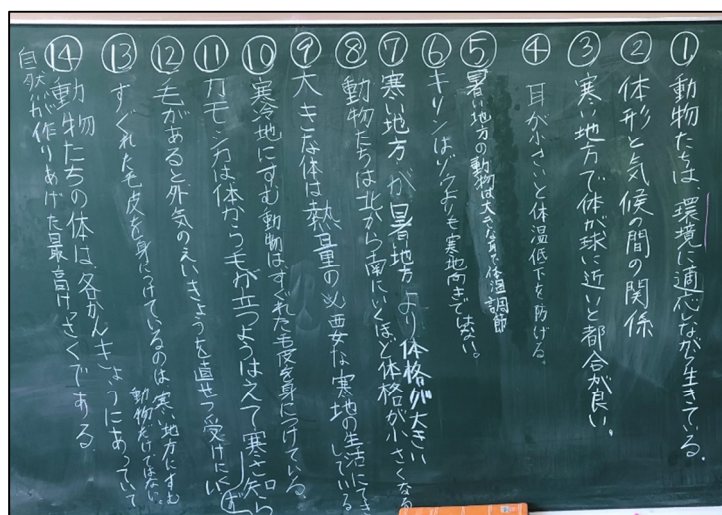 ①動物たちは、環境に適応ながら生きている。
②体形と気候の間の関係
③寒い地方で体が球に近いと都合が良い。
④耳が小さいと体温低下を防げる。
⑤暑い地方の動物は大きな耳で体温調節
⑥キリンはゾウよりも寒地向きではない。
⑦寒い地方が暑い地方より体格が大きい
⑧動物たちは北から南にいくほど体格が小さくなる
⑨大きな体は熱量の必要な寒地の生活にてきしている
⑩寒冷地にすむ動物はすぐれた毛皮を身につけている。
⑪カモシカは体から毛が立つようはえて寒さ知らず
⑫毛があると外気のえいきょうを直せつ受けにくい
⑬すぐれた毛皮を身につけているのは寒い地方にすむ
動物だけではない。
⑭動物たちの体は各かんきょうにあっていて
自然が作りあげた最高けっさくである